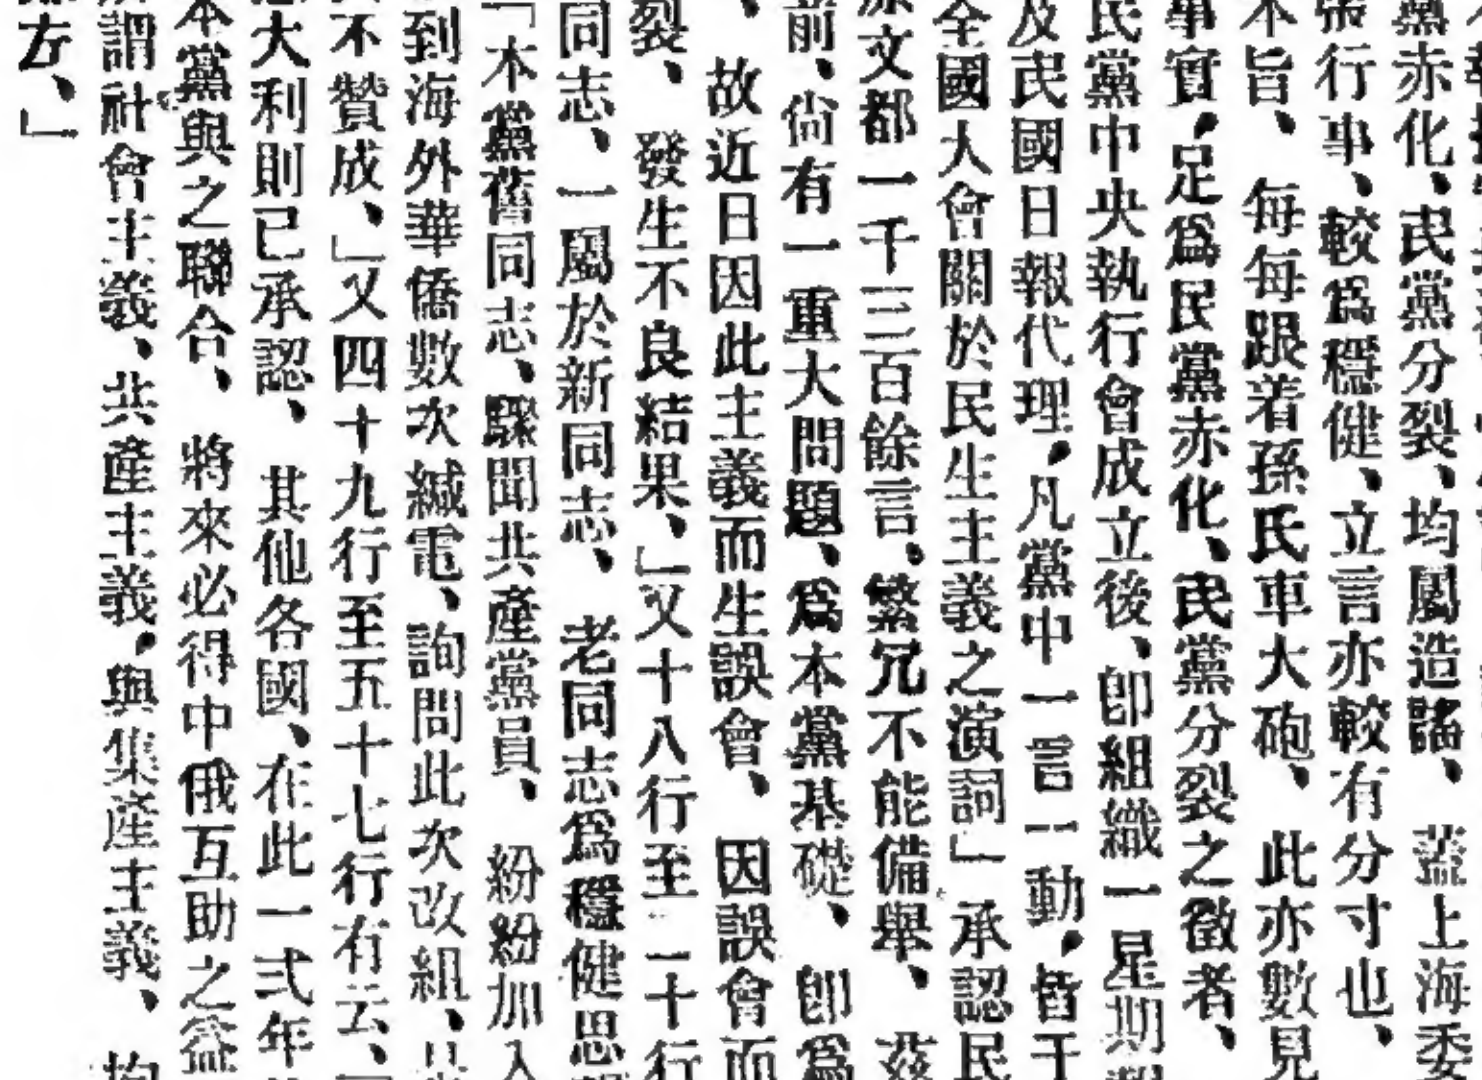 黨赤化、民黨分裂、均屬造謠、　蓋上海委
行事、較爲穩健、立言亦較有分寸也、
本旨、　每每跟着孫氏車大砲、　此亦數見
事實，足爲民黨赤化、民黨分裂之徵者、
民黨中央執行會成立後、卽組織一星期
及民國日報代理，凡黨中一言一動，皆于
全國大會關於民生主義之演詞」承認民
原文都一千三百餘言、繁冗不能備舉、　茲
前、尙有一重大問題、爲本黨基礎、　卽爲
、　故近日因此主義而生誤會、　因誤會而
裂、　發生不良結果、」又十八行至二十行
同志、一屬於新同志、　老同志爲穩健思
「本黨舊同志、驟聞共產黨員、　紛紛加入
到海外華僑數次緘電、詢問此次改組、
不贊成、」又四十九行至五十七行有云、「
大利則已承認、　其他各國、在此一弍年
本黨與之聯合、　將來必得中俄互助之益
謂社會主義、共產主義，與集產主義、　均
方、」